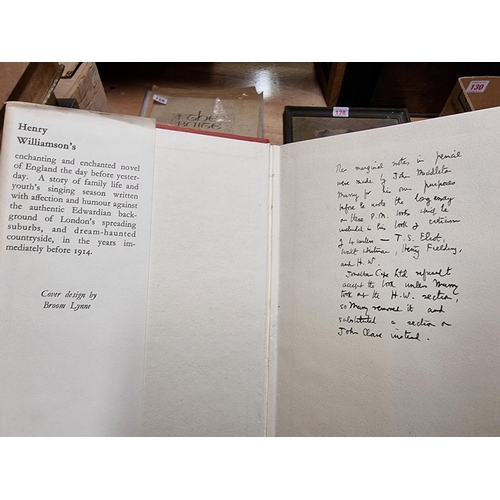 Henry
Williamson's
enchanting and enchanted novel
of England the day before yester-
day. A story of family life and
youth's singing season written
with affection and humour against
the authentic Edwardian back-
ground of London's spreading
suburbs, and dream-haunted
countryside, in the years im-
mediately before 1914.
Cover design by
Broom Lynne
The marginal notes in pencil
were made by John Middleton
Murry for his own purposes
before he wrote the long essay
on these P.M. books which he
included in his book of criticism
of 4 writers — T.S. Eliot,
Walt Whitman, Henry Fielding,
and H.W.
Jonathan Cape Ltd refused to
accept the book unless Murry
took out the H.W. section,
so Murry removed it and
substituted a section on
John Clare instead.
130